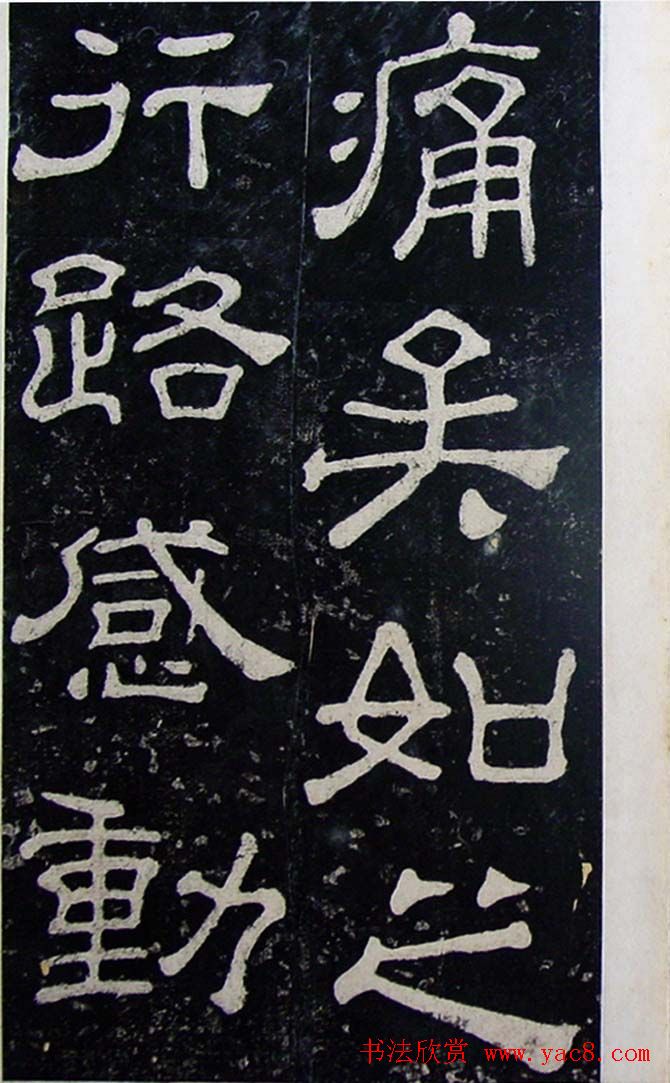 痛矣如之
行路感動
书法欣赏 www.yac8.com